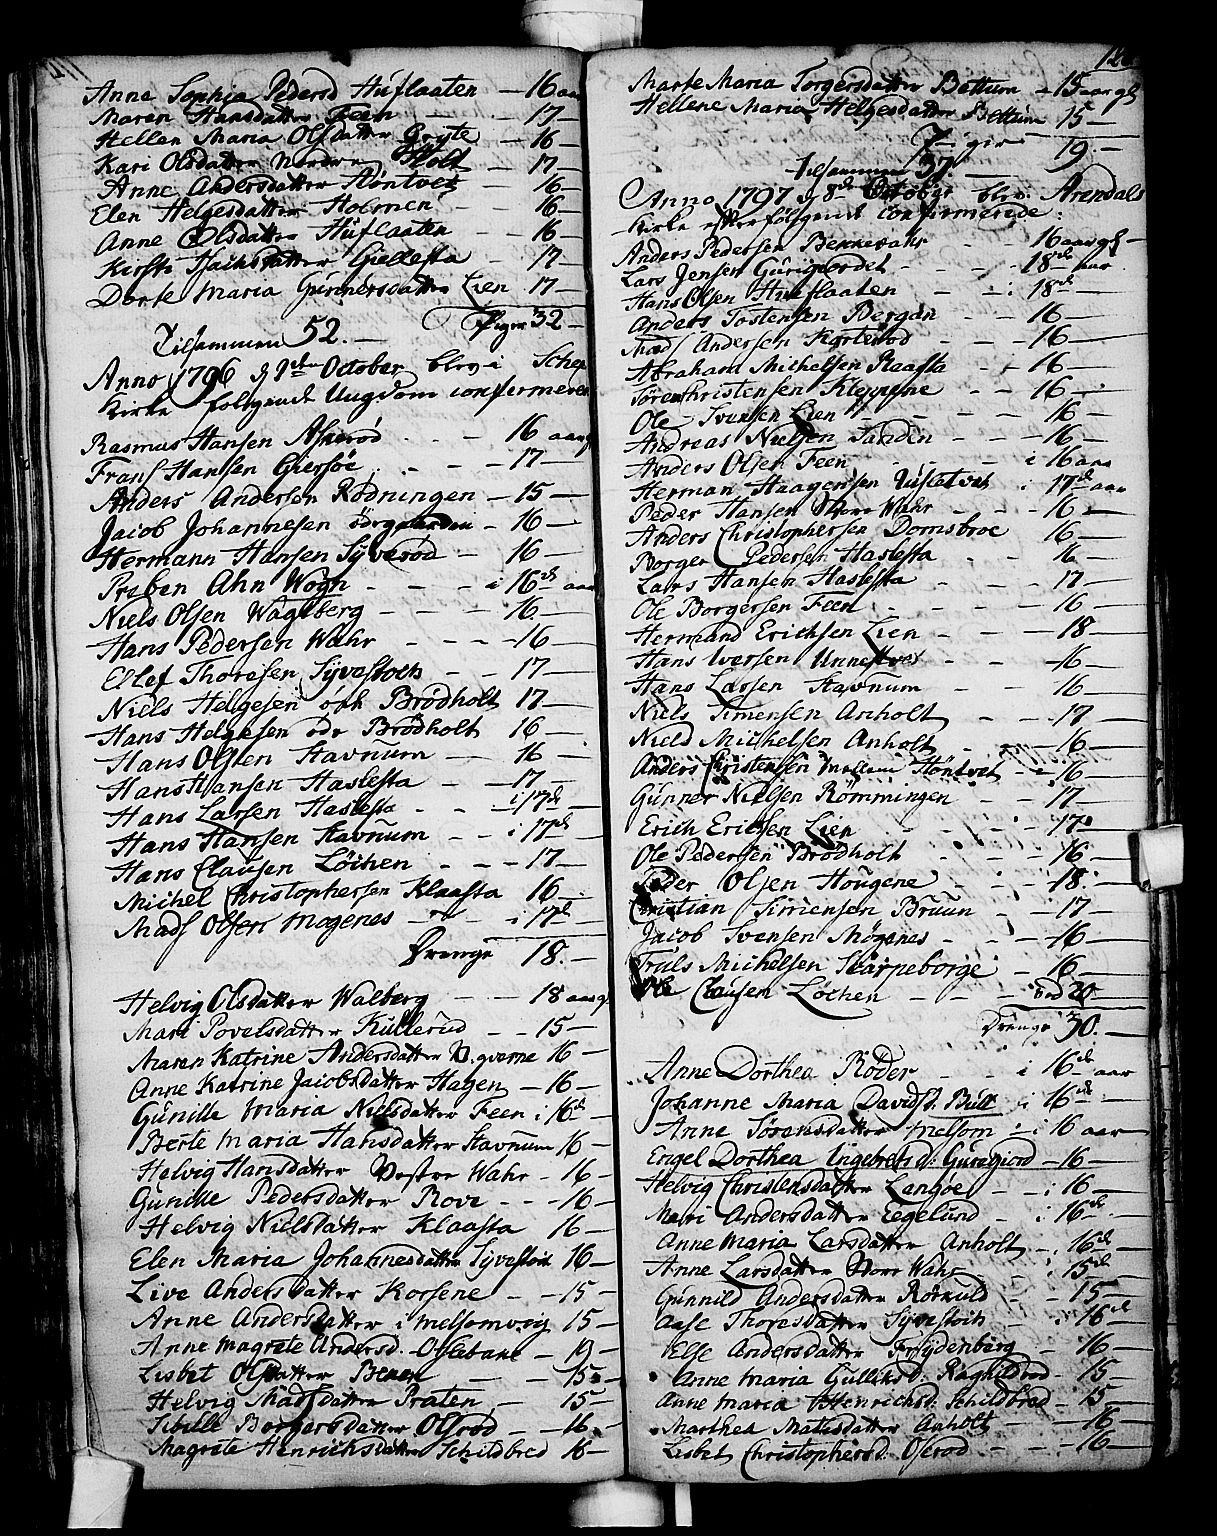 Anne Sophia Pedersd Huflaaten - 16 aar
Maren Hansdatter Feen - 17 -
Hellen Maria Olsdatter Gryte - 16 -
Kari Olsdatter Nordre Holt - 17 -
Anne Andersdatter Høntvet - 16 -
Elen Helgesdatter Holmen - 16 -
Anne Olsdatter Huflaaten - 16 -
Kirsti Isachsdatter Giellesta - 17 -
Dorte Maria Gunnersdatter Lien 17 -
Piger 32 -
Tilsammen 52. -
Anno 1796 d October blev i
Kirke følgende Ungdom confermeret
Rasmus Hansen Askerød - 16 aar
Frans Hansen Giersøe - 17 -
Anders Andersen Rødningen - 15 -
Jacob Johannesen - 16 -
Hermann Hansen Syverød - 16 -
Preben Ahn Wogn - i 16de aar
Niels Olsen Waglberg - 16 -
Hans Pedersen Wahr - 16 -
Ellef Thoresen Syvestoch - 17 -
Niels Helgesen Brødholt 17 -
Hans Helgesen Brødholt 16 -
Hans Olsen Stavnum - 16 -
Hans Hansen Haslesta - 17 -
Hans Larsen Haslesta - i 17de
Hans Hansen Stavnum - i 17de
Hans Clausen Løchen - 17 -
Michel Christophersen Klaasta 16 -
Mads Olsen Mogenes - i 17de
Drenge 18. -
Helvig Olsdatter Walberg - 18 aar
Mari Povelsdatter Kullerud - 15 -
Maren Katrine Andersdatter 16 -
Anne Katrine Jacobsdatter Hagen - 16 -
Gunille Maria Nielsdatter Feen i 16de
Berte Maria Hansdatter Stavnum 16 -
Helvig Hansdatter Vestre Wahr - 16 -
Gunille Pedersdatter Rove - 16 -
Helvig Nielsdatter Klaasta 16 -
Elen Maria Johannesdatter Syvestoch 16 -
Live Andersdatter Korsene - 15 -
Anne Andersdatter i Melsomvig 15 -
Anne Magrete Andersd. Oslebake - 19 -
Lisbet Olsdatter - 15 -
Helvig Madsdatter Præten - 15 -
Sibille Borgersdatter Olsrød - 16 -
Magrete Henrichsdatter Schildbred 16 -
Marte Maria Torgersdatter Bettum - 15 aar gl
Hellene Maria Helgesdatter Bettum 15 -
Piger 19. -
Tilsammen 37 -
Anno 1797 d 8de October blev i Arendals
Kirke efterfølgende confirmerede:
Anders Pedersen Bekkevahr - 16 aar gl -
Lars Jensen Gurigiordet - 18de aar
Hans Olsen Huflaaten - i 18de -
Anders Tostensen Bergan - 16 -
Mads Andersen - 16 -
Abraham Michelsen Raasta - 16 -
Søren Christensen Kleppene - 16 -
Ole Svensen Lien - 16 -
Andreas Nielsen Sanden - 16 -
Anders Olsen Feen - i 16 aar
Herman Haagensen i 17de aar
Peder Hansen Norre Wahr - 16 -
Anders Christophersen Domsbroe 16 -
Borger Pedersen Haslesta - 16 -
Lars Hansen Haslesta - 17 -
Ole Borgersen Feen - 16 -
Hermand Erichsen Lien - 18 -
Hans Iversen Unnestvet - 16 -
Hans Larsen Stavnum - 16 -
Niels Simensen Anholt - 17 -
Niels Michelsen Anholt - 16 -
Anders Christensen Mellem Høntvet - 16 -
Gunner Nielsen Rømmingen - 17 -
Erich Erichsen Lien - 17 -
Ole Pedersen Brødholt - 16 -
Peder Olsen Hougene - 18 -
Christian Simensen Bruun - 17 -
Jacob Svensen Mogenes - 16 -
Truls Michelsen Skarpeborge - 16 -
Ole Clausen Løchen - 20 -
Drenge 30. -
Anne Dorthea Røder - i 16de aar
Johanne Maria Davidsd: Bull i 16de
Anne Sørensdatter Melsom - i 16 aar
Engel Dorthea Ingebretsd: Gurigiord - 16 -
Helvig Christensdatter Langøe - i 16 -
Mari Andersdatter Eegelund - i 16de
Anne Maria Larsdatter Anholt - i 16de
Anne Larsdatter Norr Wahr - i 15de
Gunnild Andersdatter Rotkuld - 15 -
Aase Thoresdatter Syvestoch - i 16de
Else Andersdatter Frydenberg - 16 -
Anne Maria Gulliksd: Ragnildrød - 15 -
Anne Maria Henrichsd: Schildbred - 15 -
Marthea Matisdatter Aaholt - 16 -
Lisbet Christophersd: Oserød - 16 -